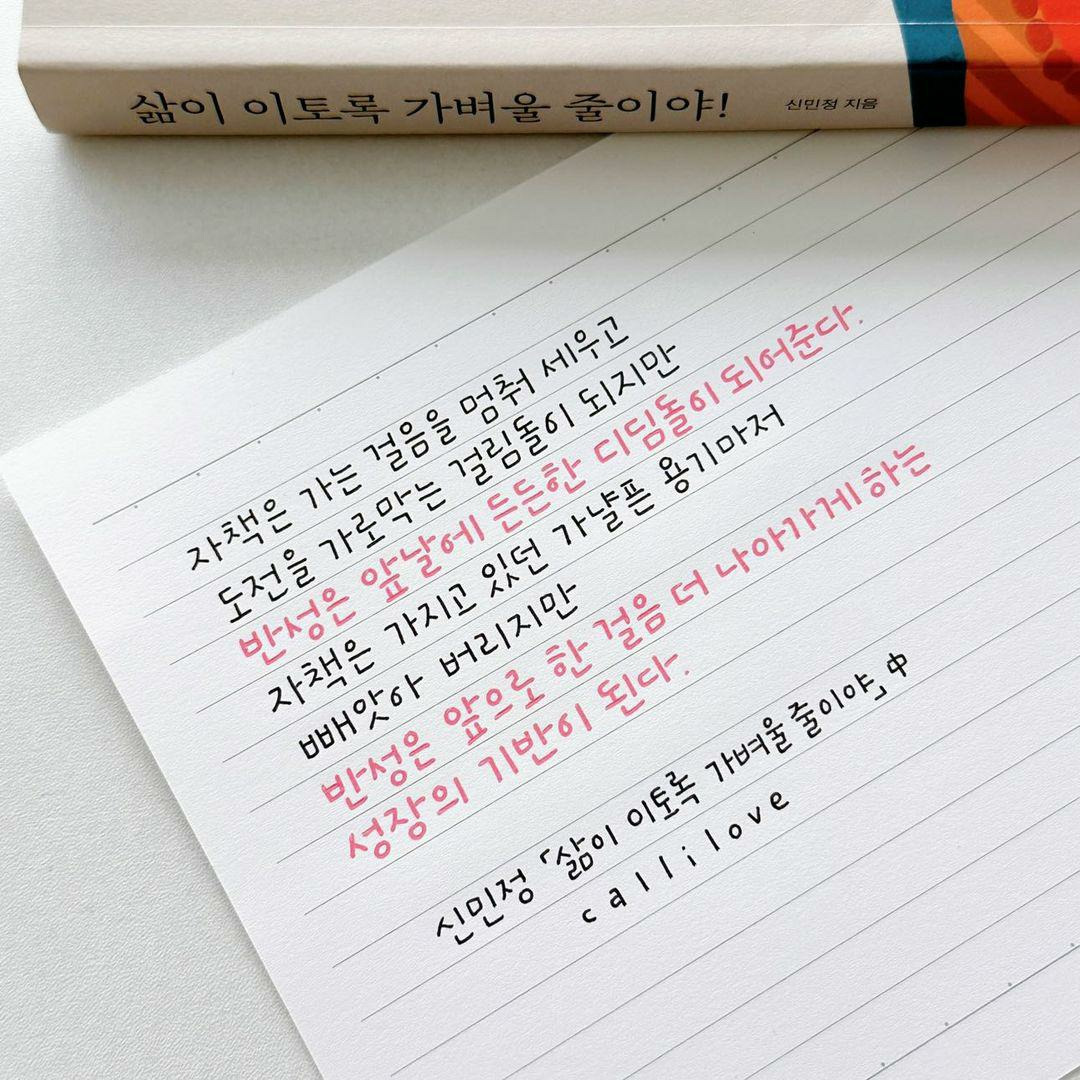 삶이 이토록 가벼울 줄이야! 신민정 지음
자책은 가는 걸음을 멈춰 세우고
도전을 가로막는 걸림돌이 되지만
반성은 앞날에 든든한 디딤돌이 되어준다.
자책은 가지고 있던 가냘픈 용기마저
빼앗아 버리지만
반성은 앞으로 한 걸음 더 나아가게 하는
성장의 기반이 된다.
신민정 「삶이 이토록 가벼울 줄이야」 中
callilove